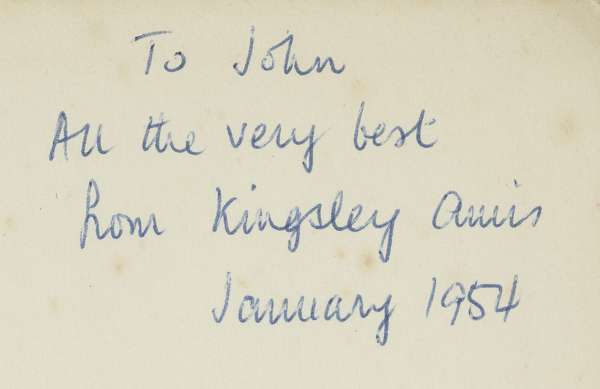 To John
All the very best
from Kingsley Amis
January 1954